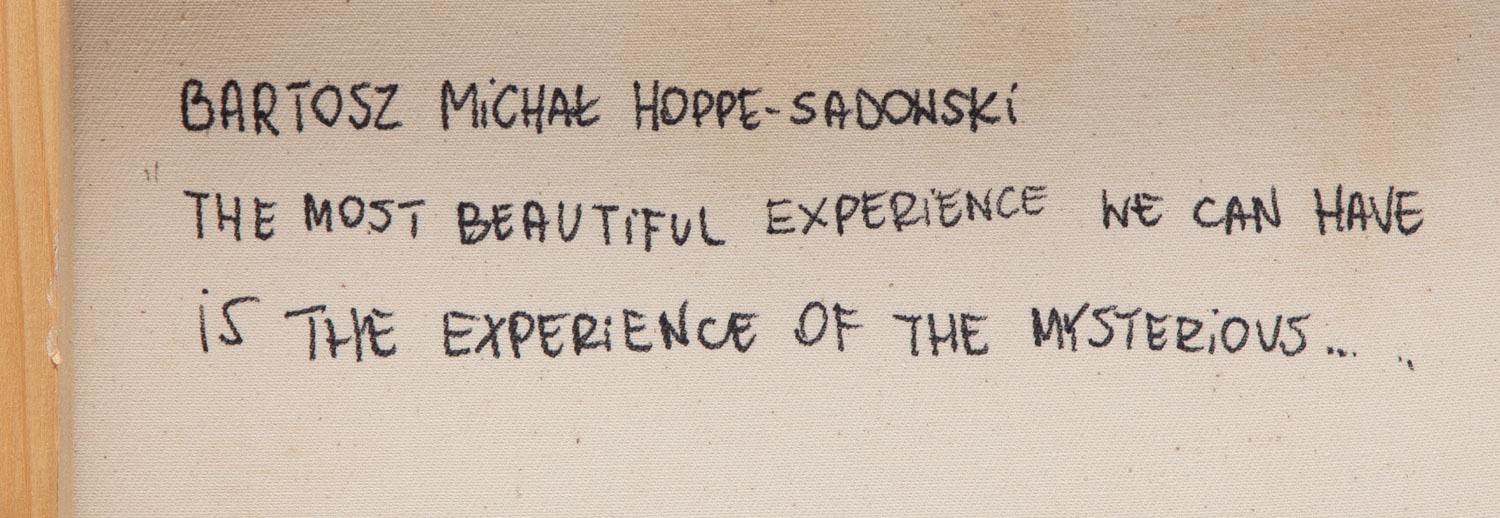 BARTOSZ MiCHAŁ HOPPE-SADOWSKi
"THE MOST BEAUTiFUL EXPERiENCE WE CAN HAVE
iS THE EXPERiENCE OF THE MYSTERiOUS... "